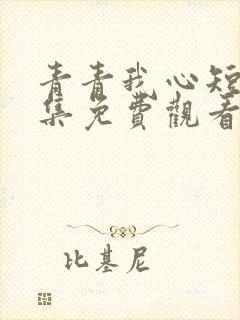 青青我心短
集免費觀看
比基尼